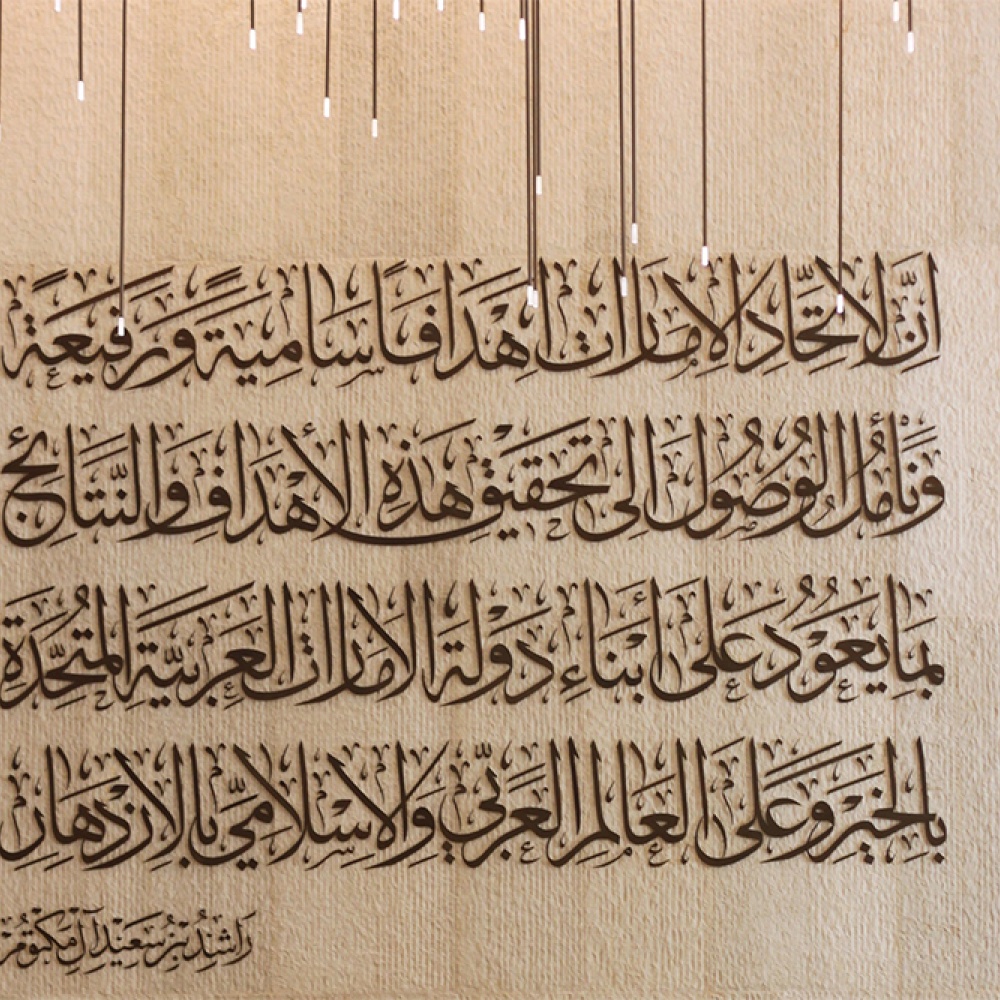 إِنَّ لاتِّحَادِ الإِمَارَاتِ أَهْدَافًا سَامِيَةً وَرَفِيعَةً
وَنَأْمُلُ الوُصُولَ إِلى تَحْقِيْقِ هَذِهِ الأَهْدَافِ وَالنَّتَائِجِ
بِمَا يَعُوْدُ عَلَى أَبْنَاءِ دَوْلَةِ الامَارَاتِ العَرَبِيَّةِ المُتَّحِدَةِ
بِالخَيْرِ وَعَلَى العَالَمِ العَرَبِّيِ وَالاِسْلَامِيِّ بِالاِزْدِهَارِ
رَاشِدُ بْنُ سَعِيْد آل مَكْتُوْمْ